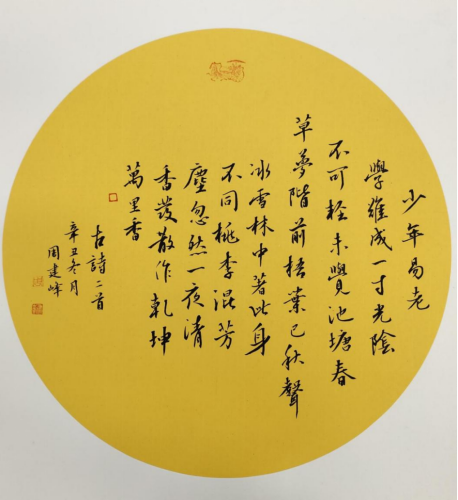 少年易老
學難成一寸光陰
不可輕未覺池塘春
草夢階前梧葉已秋聲
冰雪林中著此身
不同桃李混芳
塵忽然一夜清
香發散作乾坤
萬里香
古詩二首
辛丑冬月
周建峰